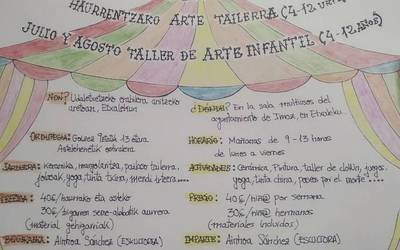 HAURRENTZAKO ARTE TAILERRA (4-12 urte
JULIO Y AGOSTO TALLER DE ARTE INFANTIL (4-12 AÑOS)
NON?
aretoan, Etxalekun
ORDUTEGIA: Goizez 9etatik 13 etara
Astelehenetik ostiralera
JARDUERA: keramika, margolaritza, pailaso tailerra,
jolasak, yoga, tinta txina, mendi irteera....
PREZIOA: 40€/haurreko eta asteko
30€/bigarren seme-alabatik aurrera
(material gehigarriak)
EMANGARRIA: Ainhoa Sánchez (ESKULTOREA)
¿DÓNDE? En la sala multiusos del
ayuntamiento de Imoz, en Etxaleku.
HORARIO: Mañanas de 9-13 horas
de lunes a viernes
ACTIVIDADES: Cerámica, Pintura, taller de clown, juegos,
yoga, tinta china, paseos por el monte ....
PRECIO: 40€/niño por semana
30€/niño hermanos
(materiales incluidos)
IMPARTE: Ainhoa Sánchez (ESCULTORA)